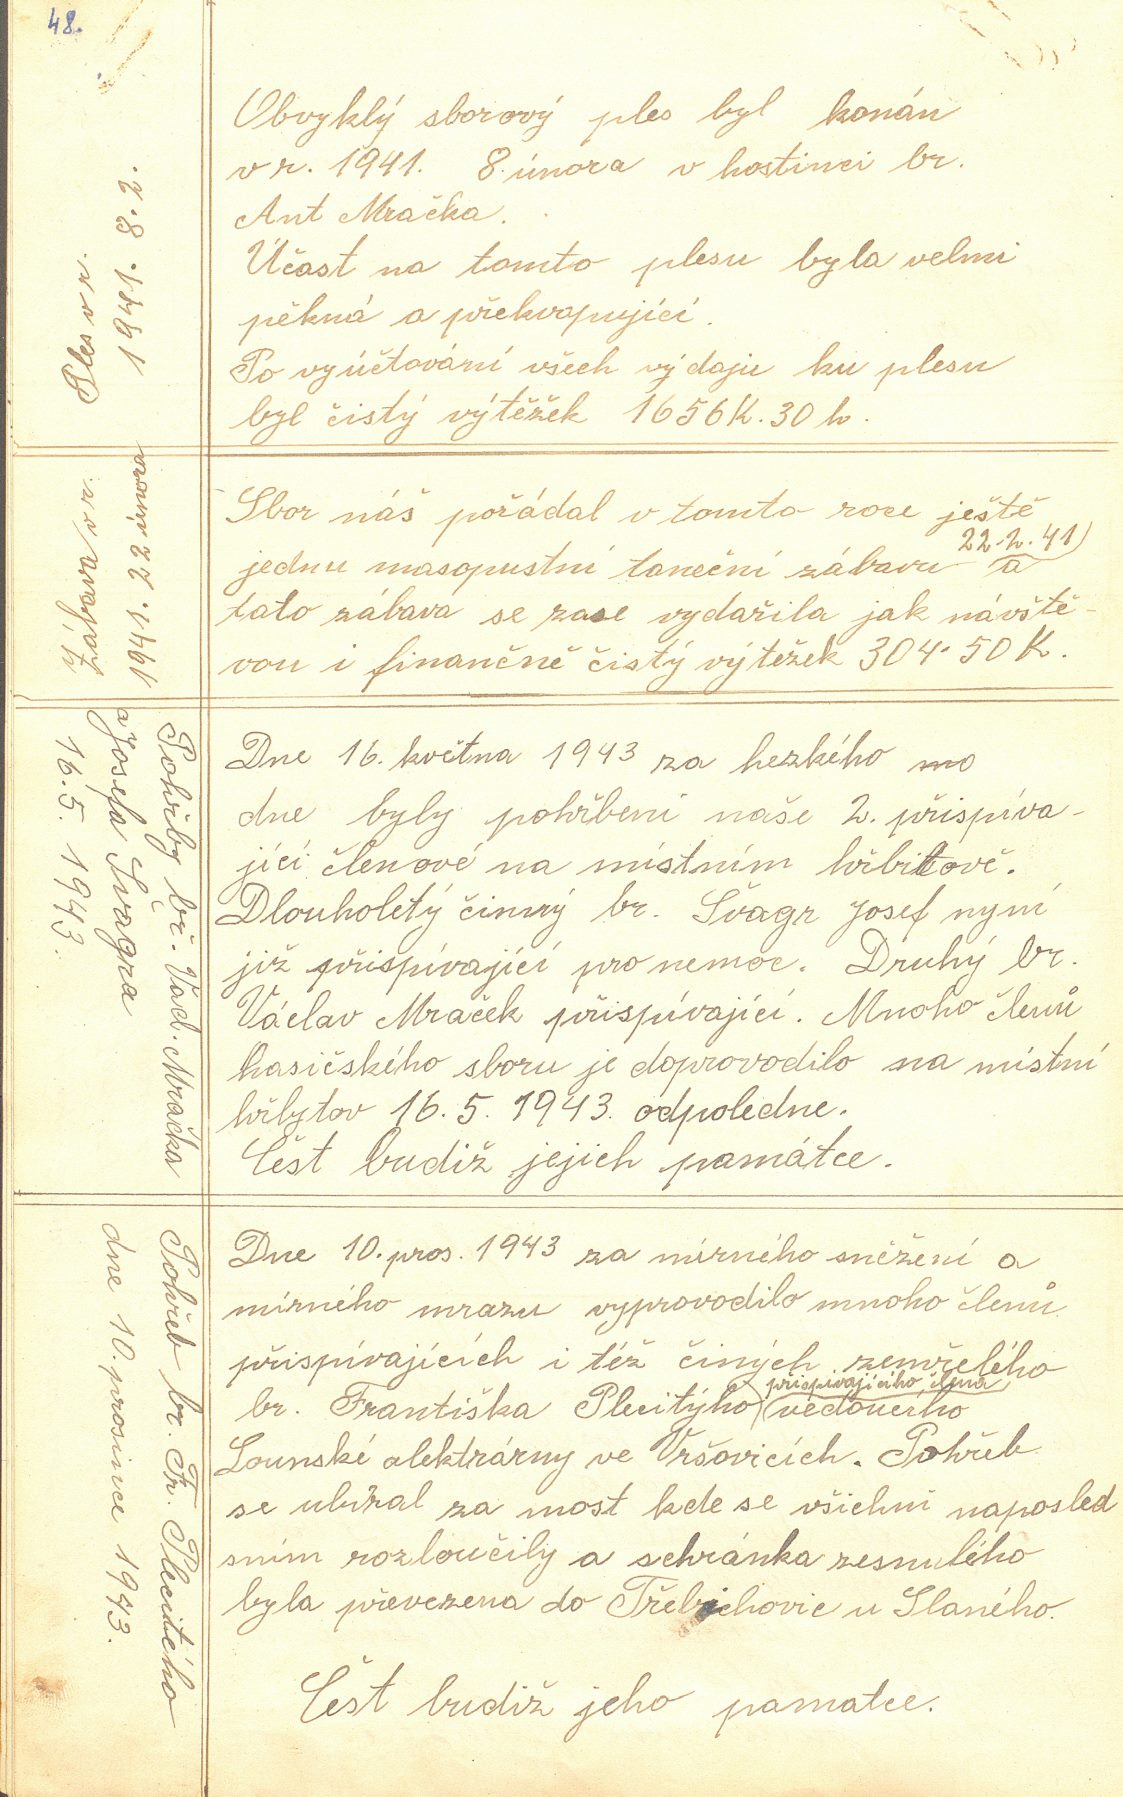 48.
Ples v r.
1941. 8.2.
Obvyklý sborový ples byl konán
v r. 1941. 8. února v hostinci br.
Ant Mračka.
Účast na tomto plesu byla velmi
pěkná a překvapující.
Po vyúčtování všech výdaju ku plesu
byl čistý výtěžek 1656K.30 h.
Zábava v r.
1941. 22 února
Sbor náš pořádal v tomto roce ještě
22.2.41
jednu masopustní taneční zábavu a
tato zábava se zase vydařila jak návště-
vou i finančně čistý výtěžek 304·50 K.
Pohřby bř. Václ. Mračka
a Josefa Švagra
16.5. 1943.
Dne 16. května 1943 za hezkého
dne byly pohřbeni naše 2. přispíva-
jící členové na místním hřbitově.
Dlouholetý činný br. Švagr Josef nyní
již přispívající pro nemoc. Druhý br.
Václav Mraček přispívající. Mnoho členů
hasičského sboru je doprovodilo na místní
hřbytov 16.5. 1943. odpoledne.
Čest budiž jejich památce.
Pohřeb br. Fr. Plecitého
dne 10. prosince 1943.
Dne 10. pros. 1943 za mírného sněžení a
mírného mrazu vyprovodilo mnoho členů
přispívajících i též činých zemřelého
přispívajícího člena
br. Františka Plecitýho vedoucího
Lounské elektrárny ve Vršovicích. Pohřeb
se ubíral za most kde se všichni naposled
sním rozloučily a schránka zesnulého
byla převezena do Třebichovic u Slaného.
Čest budiž jeho pamatce.